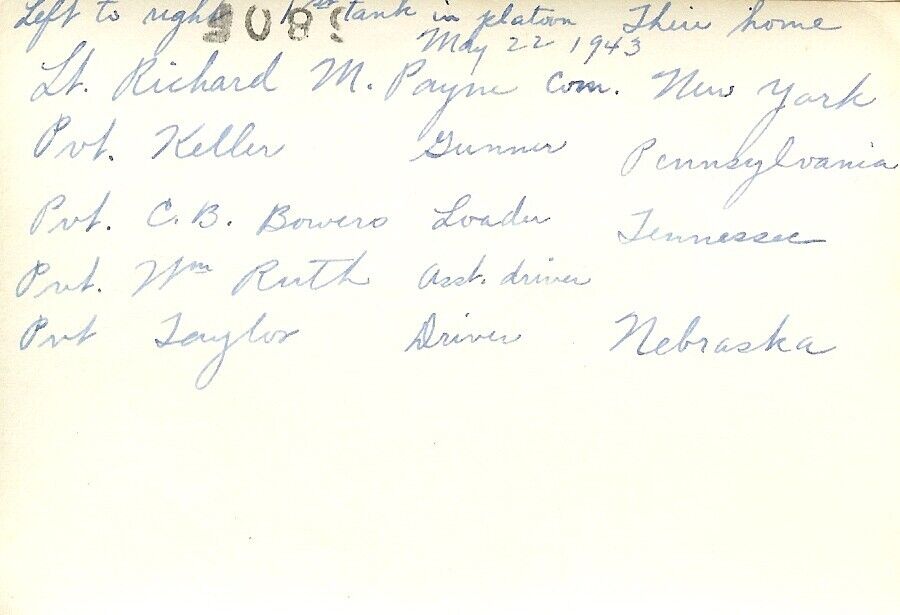 Left to right 1st tank in platoon Their home
May 22 1943
Lt. Richard M. Payne Com. New York
Pvt. Keller Gunner Pennsylvania
Pvt. C. B. Bowers Loader Tennessee
Pvt. Wm Ruth Asst. driver
Pvt Taylor Driver Nebraska